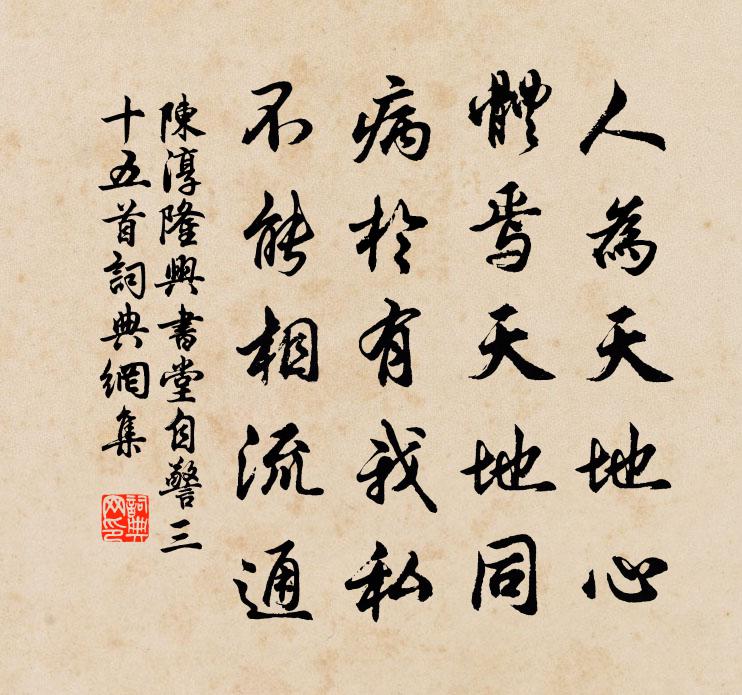 人為天地心
體焉天地同
病於有我私
不能相流通
陳淳隆興書堂自警三
十五首詞典網集
詞典
网印